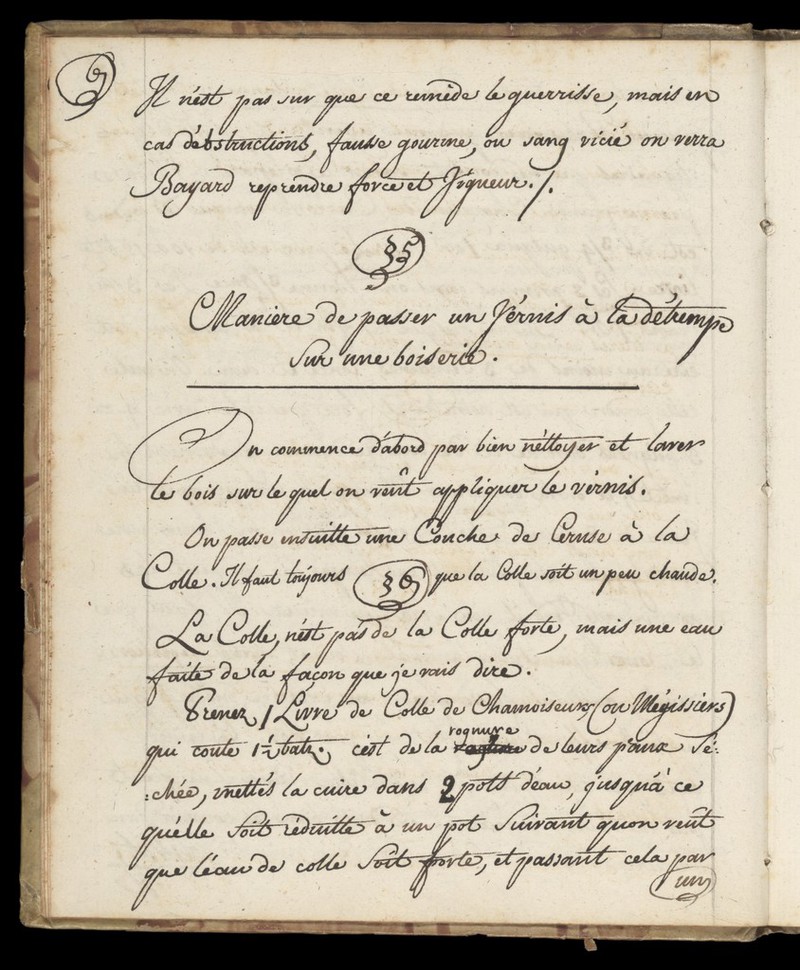 9
Il n'est pas sur que ce reméde le guerrisse, mais en
cas d'ébstructions, fausse gourme, ou sang vicié on verra
Bayard reprendre force et Vigueur./.
§5
Maniere de passer un Vérnis à la détrempe
sur une boiserie.
On commence d'abord par bien néttoyer et laver
le bois sur le quel on veût appliquer le vérnis.
On passe ensuitte une Couche de Ceruse à la
Colle. Il faut toujours §6 que la Colle soit un peu chaude.
La Colle, n'est pas de la Colle forte, mais une eau
faite de la façon que je vais dire.
Prenez 1 Livre de Colle de Chamoiseurs (ou Mégissiers)
rognure
qui coute 1½ batz. c'est de la de leurs péaux sé:
:chée, mettés la cuire dans 2 pots d'eau, jusquá ce
quélle soit réduitte à un pot suivant quon veût
que léau de colle soit forte, et passant cela par
un